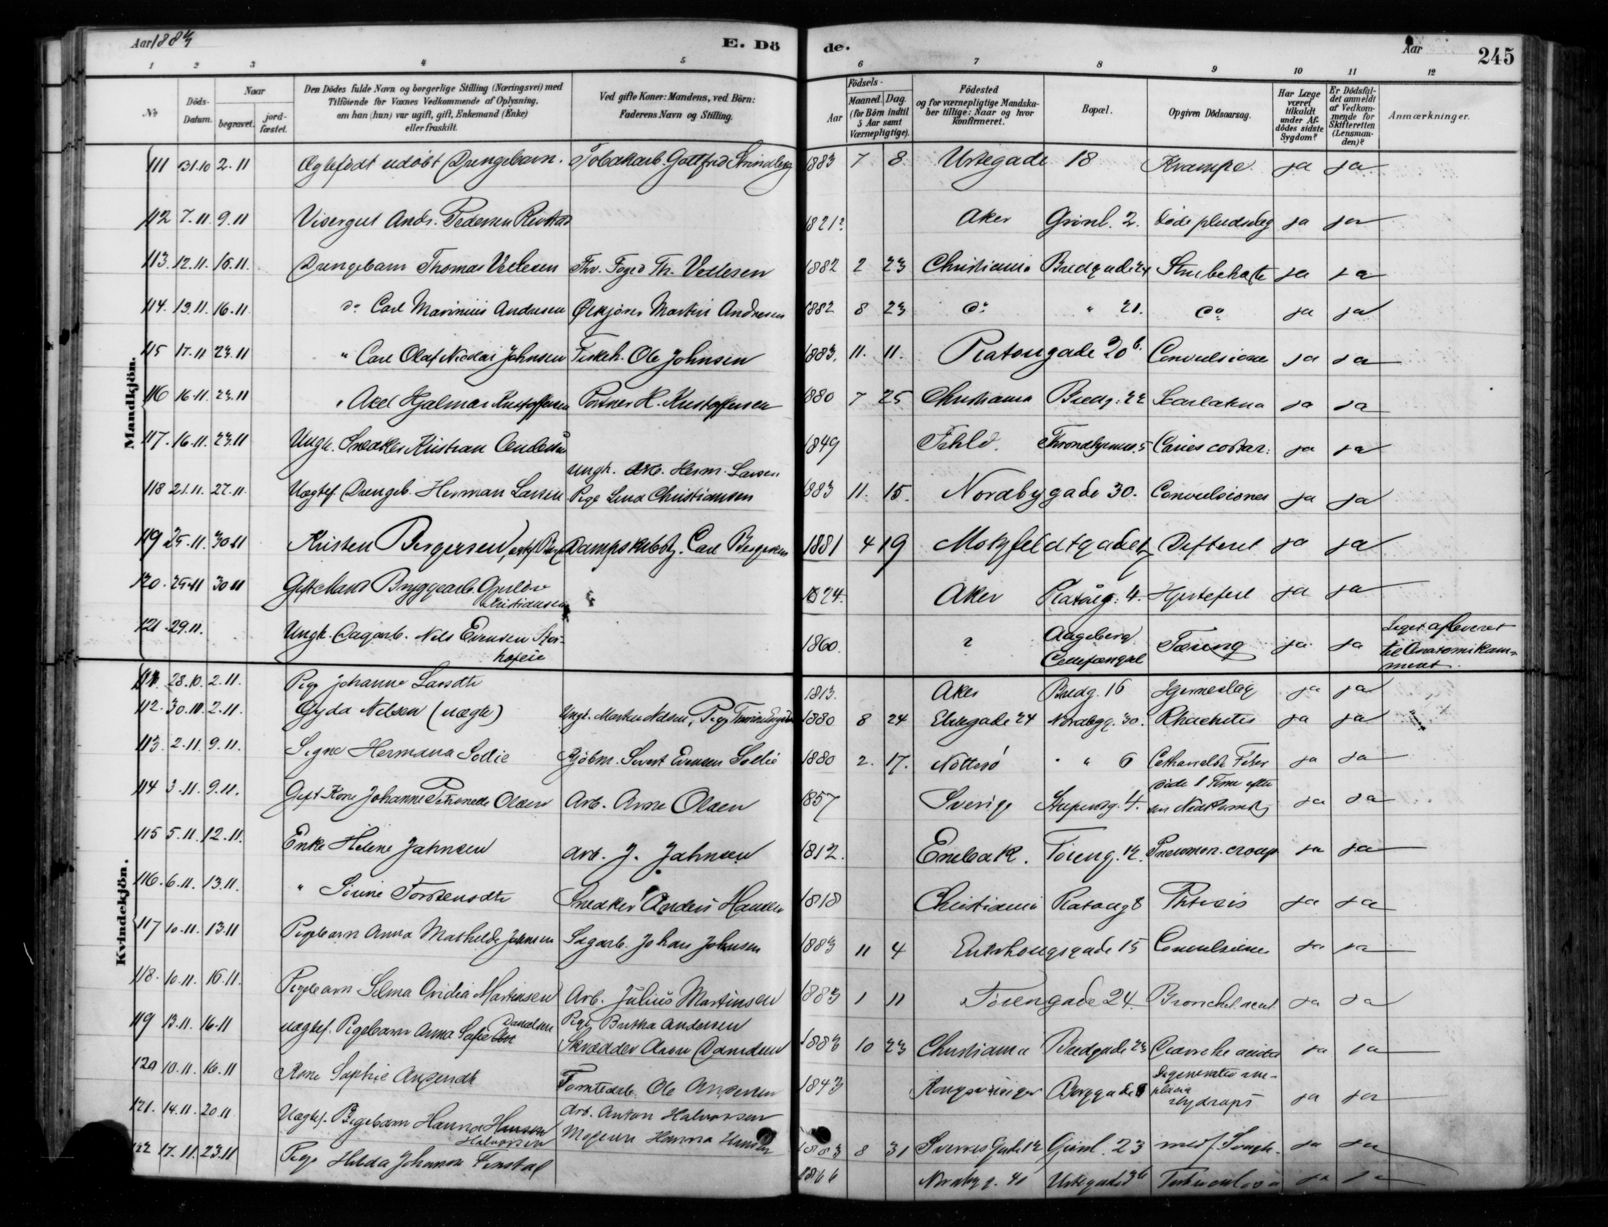 Aar 1883
E. Dö
de.
Aar
245
1 2 3 4 5 6 7 8 9 10 11 12
No
Döds-Datum.
Naar
begravet.
jord-fæstet.
Den Dödes fulde Navn og borgerlige Stilling (Næringsvei) med
Tilföiende for Voxnes Vedkommende af Oplysning,
om han (hun) var ugift, gift, Enkemand (Enke)
eller fraskilt.
Ved gifte Koner: Mandens, ved Börn:
Faderens Navn og Stilling.
Födsels-
Aar
Maaned. Dag.
(for Börn indtil
5 Aar samt
Værnepligtige).
Födested
og for værnepligtige Mandska-
ber tillige: Naar og hvor
konfirmeret.
Bopæl.
Opgiven Dödsaarsag.
Har Læge
været
tilkaldt
under Af-
dödes sidste
Sygdom?
Er Dödsfal-
det anmeldt
af Vedkom-
mende for
Skifteretten
(Lensman-
den)?
Anmærkninger.
Mandkjön.
111 31.10 2.11 Ægtefødt udøbt Drengebarn. Tobakarb. Gottfred Strindberg 1883 7 8 Urtegade 18 Krampe ja ja
112 7.11 9.11 Visergut Andr. Pedersen 1821? Aker Grønl. 2. Døde pludselig ja ja
113 12.11. 16.11. Drengebarn Thomas Vetlesen Thv. Foged Th. Vetlesen 1882 2 23 Christiania Bredgade 24 Strubehoste ja ja
114. 13.11. 16.11. do Carl Marinius Andresen Ølkjører Martin Andresen 1882 8 23 do " 21. do ja ja
115 17.11 23.11 " Carl Olaf Nicolai Johnsen Fiskeh. Ole Johnsen 1883. 11. 11. Platougade 20b. Convulsione ja ja
116 16.11 23.11 " Axel Hjalmar Kristoffersen Portner H. Kristoffersen 1880 7 25 Christiania Bredg. 22 Scarlatina ja ja
117. 16.11. 23.11 Ungk. Snedker Kristian 1849 Throndhjemsv. 5 Caries costar. ja ja
118 21.11. 27.11. Uægtef. Drengeb. Herman Larsen Ungk. Arb. Herm. Larsen
Pige Lina Christiansen 1883 11. 15. Nordbygade 30. Convulsiones ja ja
119 25.11. 30.11 Kristen Bergersen, Dampskibsb. Carl Bergersen 1881 4 19 Motzfeldtgade Difterit ja ja
120. 25.11 30.11 Gift Mand Bryggearb. Gulbr.
Christiansen 1824. Aker Platoug. 4. Hjertefeil ja ja
121. 29.11. Ungk. Dagarb. Nils Evensen
1860. ? Aageberg
Cellefængsel Tæring ja ja Liget afleveret
til Anatomikam-
meret.
Kvindekjön.
111. 28.10. 2.11. Pige Johanne Larsdtr 1813. Aker Bredg. 16 Hjerneslag ja ja
112. 30.10. 2.11. Gyda Nilsen (uægte) 1880 8 24 Elvegade 24 Nordbyg. 30. Rhachitis ja ja
113. 2.11 9.11. Signe Hermana Sollie Sivert Evensen Sollie 1880 2. 17. Nøtterø " " 6 Catharralsk Feber ja ja
114 3.11. 9.11. Gift Kone Johanne Olsen Arb. Arne Olsen 1857 Sverige 4. Døde 1 Time efter ja ja
115 5.11. 12.11. Enke Helene Jahnsen Arb. J. Jahnsen 1812. Enebak. Tøieng. 12. Pneumon. croup ja ja
116. 6.11. 13.11. " Sirine Torstensdtr Snedker Anders Hansen 1818 Christiania Platoug 8 Phtisis ja ja
117 10.11. 13.11 Pigebarn Anna Mathilde Johnsen Sagarb. Johan Johnsen 1883 11 4 Enerhougsgade 15 Convulsione ja ja
118. 10.11. 16.11 Pigebarn Selma Ovidia Martinsen Arb. Julius Martinsen 1883 1 11 Tøiengade 24. Bronchit acut ja ja
119 13.11. 16.11 Uægtef. Pigebarn Anna Sofie Danielsen Pige Bertha Andersen
Skrædder Danielsen 1883 10 23 Christiania Bredgade 23 ja ja
120 10.11. 16.11 Kone Sophie Tomtearb. Ole 1843 Kongsvinger Borggade 8 Degeneratio
Hydrops ja ja
121. 14.11. 20.11 Uægtef. Pigebarn Hanna Hansen
Halvorsen Arb. Anton Halvorsen
Hanna Hansen 1883 8 31 Sverresgade 12 Grønl. 23 ja ja
122 17.11. 23.11 Pige Hilda Johanne 1866 Nordbyg. 41 Urtegade 36 ja ja